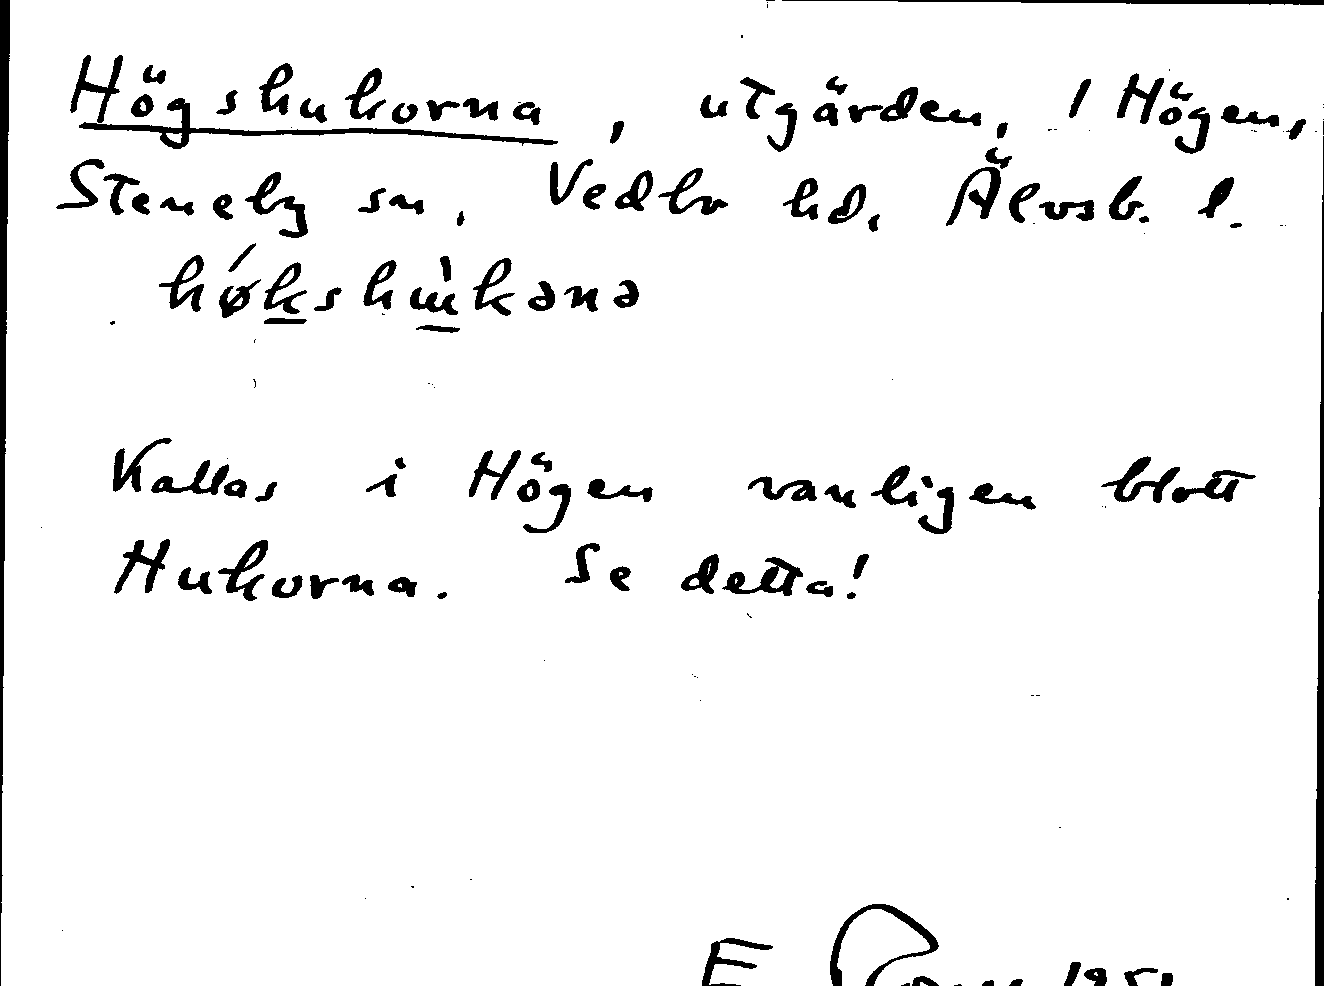 Högshukorna, utgärden, 1 Högen,
Steneby sn, Vedbo hd, Älvsb. l.
høkshukənə
Kallas i Högen vanligen blott
Hukorna. Se detta!
E